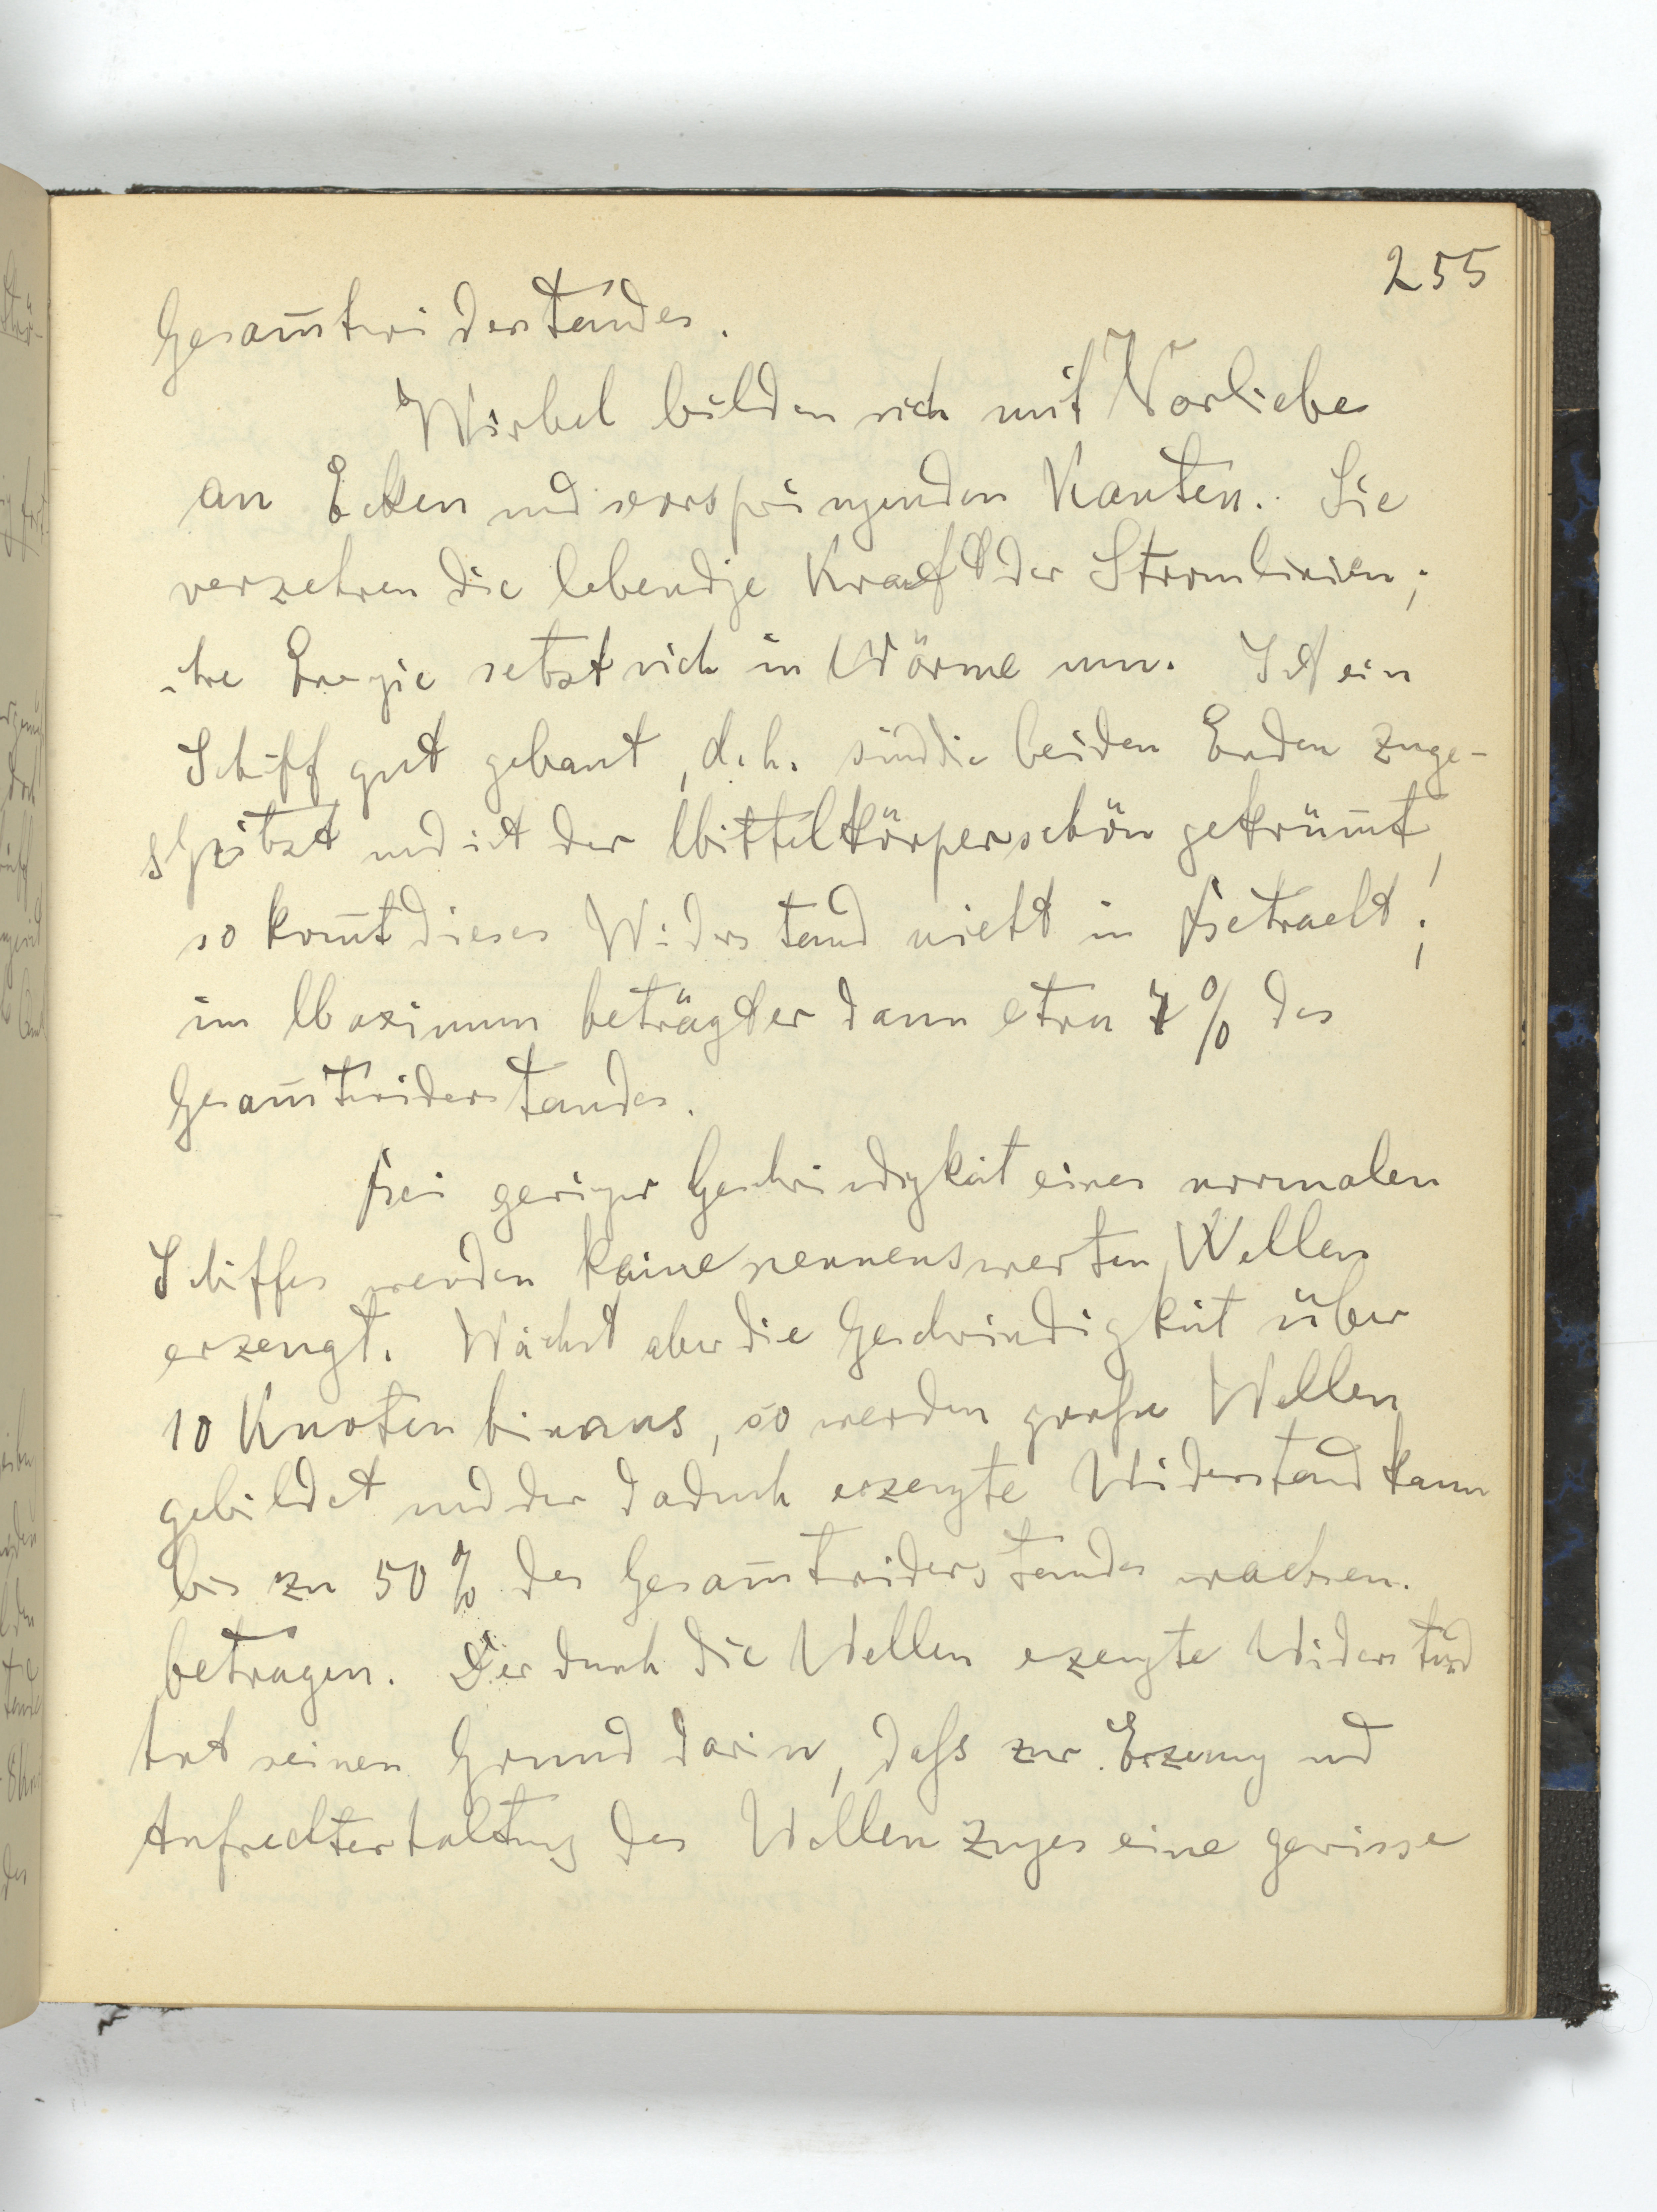 255
Gesam̄twiderstandes.
Wirbel bilden sich mit Vorliebe
an Ecken und vorspringenden Kanten. Sie
verzehren die lebendge Kraft der Stromlinien;
ihre Energie setzt sich in Wärme um. Ist ein
Schiff gut gebaut, d.h. sind die beiden Enden zuge-
spitzt und ist der Mittelkörper schön gekrüm̄t,
so kom̄t dieser Widerstand nicht in Betracht;
im Maximum beträgt er dann etwa 7% des
Gesam̄twiderstandes.
Bei geringer Geschwindigkeit eines normalen
Schiffes werden keine nennenswerten Wellen
erzeugt. Wächst aber die Geschwindigkeit über
10 Knoten hinaus, so werden große Wellen
gebildet und der dadurch erzeugte Widerstand kann
bis zu 50% des Gesam̄twiderstandes wachsen.
betragen. Der durch die Wellen ezeugte Widerstand
hat seinen Grund darin, daß zur Erzeung und
Aufrechterhaltung des Wellenzuges eine gewisse